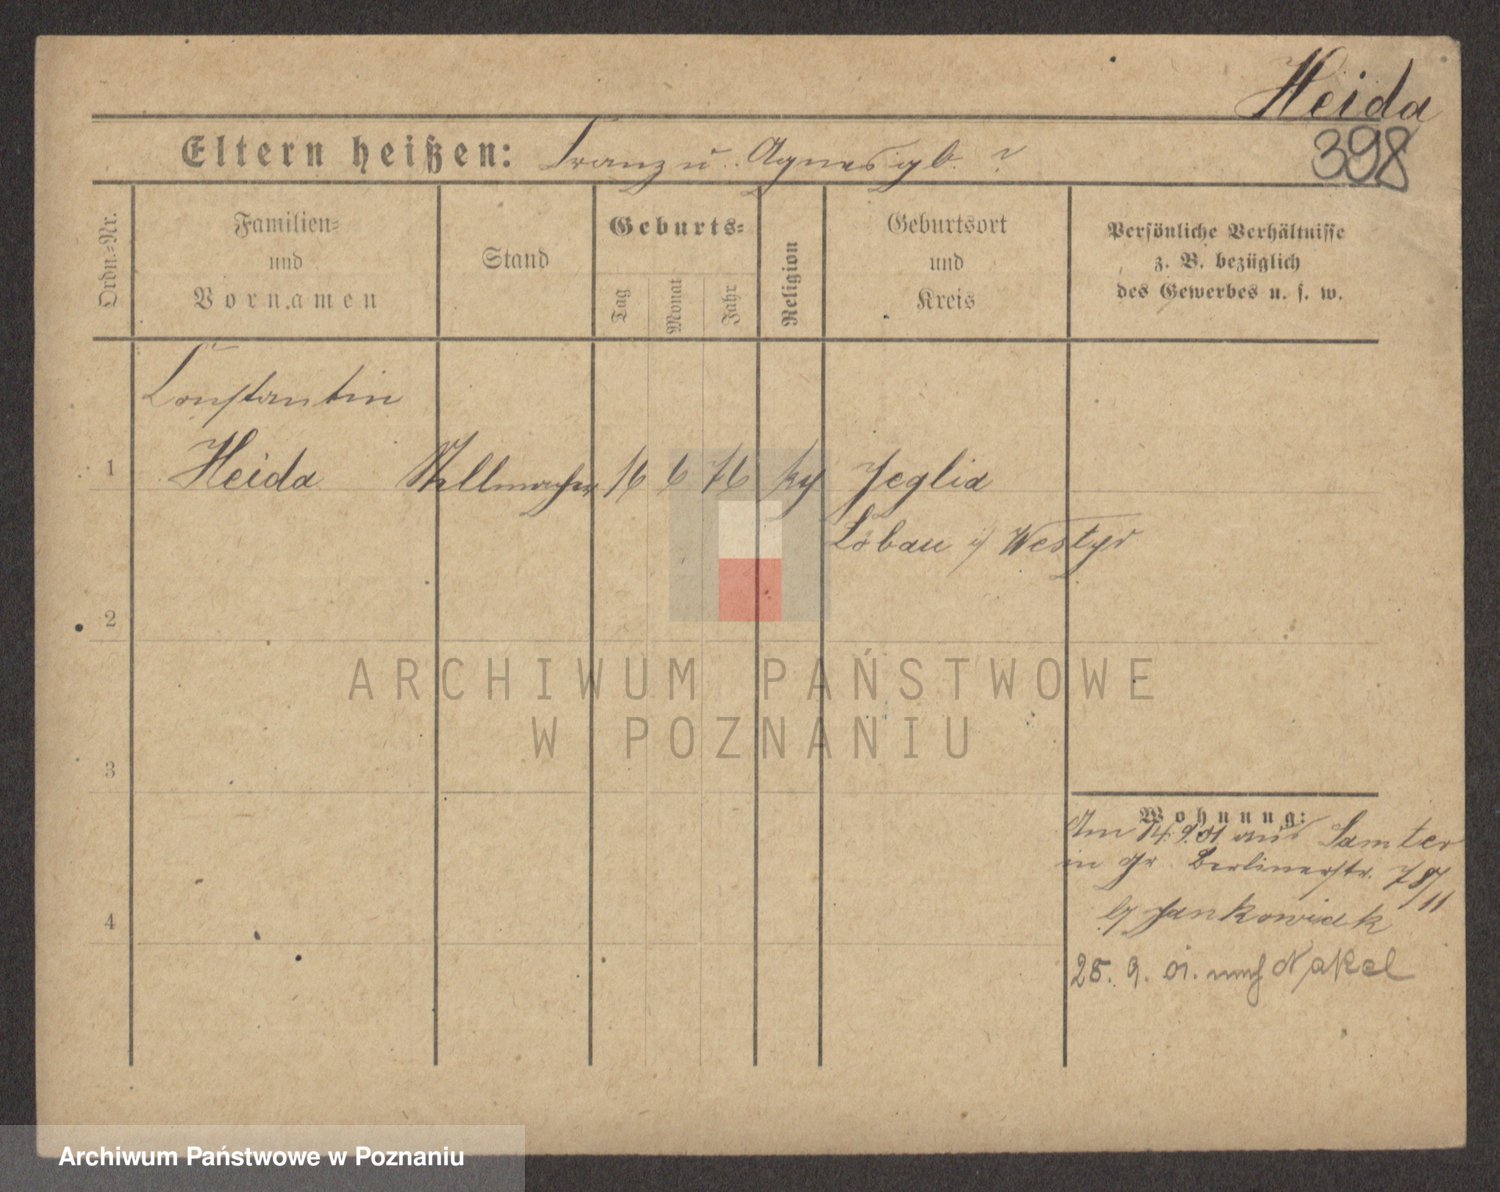 Heida
398
Eltern heißen: Franz u. Agnes gb. ?
Ordn.-Nr.
Familien- und Vornamen
Stand
Geburts-
Tag
Monat
Jahr
Religion
Geburtsort und Kreis
Persönliche Verhältnisse
z. B. bezüglich
des Gewerbes u. s. w.
Constantin
1 Heida Stellmacher 16 6 76 Jeglia
Löbau i/ Westpr
2
3
4
Wohnung:
Am 14.9.01 aus Samter
in Gr. Berlinerstr. 78/11
by Jankowiak
28. 9. 01. nach Nakel
ARCHIWUM PAŃSTWOWE
W POZNANIU
Archiwum Państwowe w Poznaniu